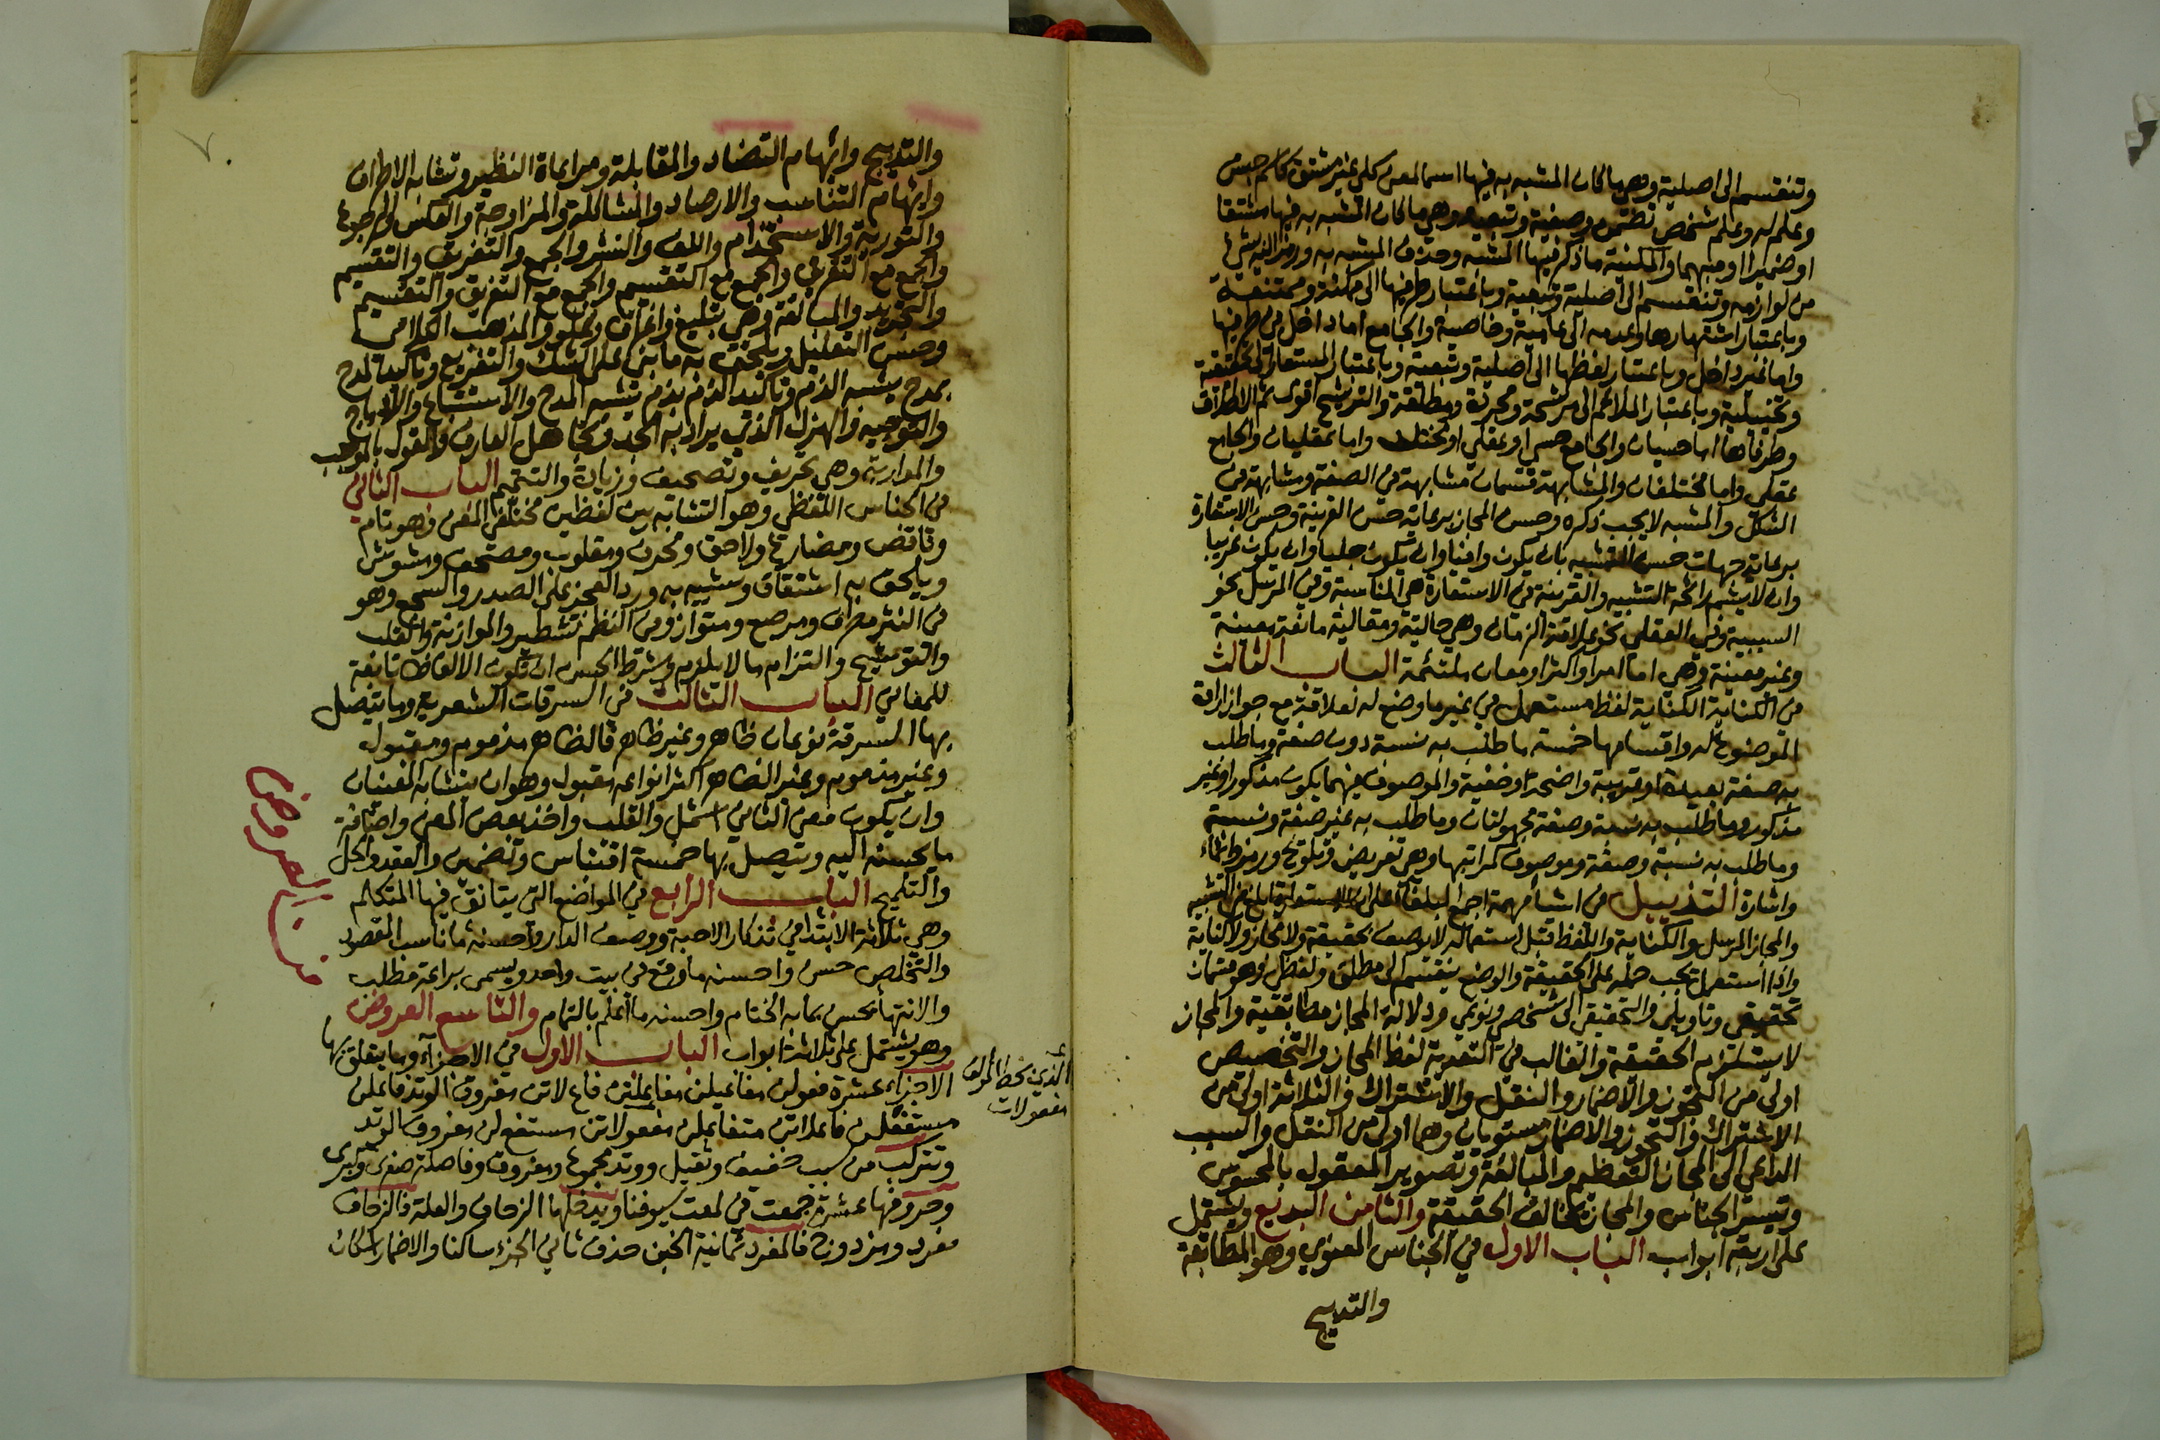 وتنقسم الى اصلية وهي ما كان المشبه به فيها اسما لمعنى كلي غير مشتق كاسم جنس
وعلم له وعلم شخص تضمن وصفية وتبعية وهي ما كان المشبه به فيها مشتقا
او ضميرا او مبهما والمكنية ما ذكر فيها المشبه وحذف المشبه به ورمز اليه بشيء
من لوازمه وتنقسم الى اصلية وتبعية وباعتبار طرفيها الى ممكنة وممتنعة
وباعتبار اشتهارها وعدمه الى عامية وخاصية والجامع اما داخل في طرفيها
واما غير داخل وباعتبار لفظها الى اصلية وتبعية وباعتبار المستعار الى تحقيقية
وتخييلية وباعتبار الملائم الى مرشحة ومجردة ومطلقة والترشيح اقوى ثم الاطلاق
وطرفاها اما حسيان والجامع حسي او عقلي او مختلف واما عقليان والجامع
عقلي واما مختلفان والمشابهة قسمان مشابهة في الصفة ومشابهة في
الشكل والمشبه لا يجب ذكره وحسن المجاز برعاية حسن القرينة وحسن الاستعارة
برعاية جهات حسن التشبيه بان يكون وافيا وان يكون جليا وان يكون غريبا
وان لا يشم رائحة التشبيه والقرينة في الاستعارة هي المناسبة وفي المرسل نحو
السببية وفي العقلي نحو علاقة الزمان وهي حالية ومقالية مانعة معينة
وغير معينة وهي اما امر او اكثر او معان ملتئمة الباب الثالث
في الكناية الكناية لفظ مستعمل في غير ما وضع له لعلاقة مع جواز ارادة
الموضوع له واقسامها خمسة ما طلب به نسبة دون صفة وما طلب
به صفة بعيدة او قريبة واضحة او خفية والموصوف فيهما يكون مذكورا وغير
مذكور وما طلب به نسبة وصفة مجهولتان وما طلب به غير صفة ونسبة
وما طلب به نسبة وصفة وموصوف لمراتبها وهي تعريض وتلويح ورمز وايماء
واشارة التذييل في اشيا مهمة اجمع البلغا على ان الاستعارة ابلغ من التشبيه
والمجاز المرسل والكناية واللفظ قبل استعماله لا يوصف بحقيقة ولا مجاز ولا كناية
واذا استعمل يجب حمله على الحقيقة والوضع ينقسم الى مطلق ولفظي وهو قسمان
تحقيقي وتاويلي والتحقيقي الى شخصي ونوعي ودلالة المجاز مطابقية والمجاز
لا يستلزم الحقيقة والغالب في التعدية لفظ المجاز والتخصيص
اولى من التجوز والاضمار والنقل والاشتراك والثلاثة اولى من
الاشتراك والتجوز والاضمار مستويان وهما اولى من النقل والسبب
الداعي الى المجاز التعظيم والمبالغة وتصوير المعقول بالمحسوس
وتيسير الجناس والمجاز يخالف الحقيقة والثامن البديع ويشتمل
على اربعة ابواب الباب الاول في الجناس المعنوي وهو المطابقة
والتدبيج
والتدبيج وايهام التضاد والمقابلة ومراعاة النظير وتشابه الاطراف
وايهام التناسب والارصاد والمشاكلة والمزاوجة والعكس والرجوع
والتورية والاستخدام واللف والنشر والجمع والتفريق والتقسيم
والجمع مع التفريق والجمع مع التقسيم والجمع مع التفريق والتقسيم
والتجريد والمبالغة وهي تبليغ واغراق وغلو والمذهب الكلامي
وحسن التعليل ويلحق به ما بني على الشك والتفريع وتاكيد المدح
بمدح يشبه الذم وتاكيد الذم بذم يشبه المدح والاستتباع والادماج
والتوجيه والهزل الذي يراد به الجد وتجاهل العارف والقول بالموجب
والمواربة وهي تحريف وتصحيف وزيادة والتتميم الباب الثاني
في الجناس اللفظي وهو التشابه بين لفظين مختلفي المعنى وهو تام
وناقص ومضارع ولاحق ومحرف ومقلوب ومصحف ومشوش
ويلحق به اشتقاق وشبيه به ورد العجز على الصدر والسجع وهو
في النثر مطرف ومرصع ومتواز وفي النظم تشطير والموازنة والقلب
والتوشيح والتزام ما لا يلزم وشرط الحسن ان تكون الالفاظ تابعة
للمعاني الباب الثالث في السرقات الشعرية وما يتصل
بها السرقة نوعان ظاهر وغير ظاهر فالظاهر مذموم ومقبول
وغير مذموم وغير الظاهر اكثر انواعه مقبول وهو ان يتشابه المعنيان
وان يكون معنى الثاني اشمل والقلب واخذ بعض المعنى واضافة
ما يحسنه اليه ويتصل بها خمسة اقتباس وتضمين والعقد والحل
والتلميح الباب الرابع في المواضع التي يتانق فيها المتكلم
وهي ثلاثة الابتدا في تذكار الاحبة ووصف الدار واحسنه ما ناسب المقصود
والتخلص حسن واحسنه ما وقع في بيت واحد ويسمى براعة مطلب
والانتها يحسن بما به الختام واحسنه ما اعلم بالتمام والتاسع العروض
وهو يشتمل على ثلاثة ابواب الباب الاول في الاجزاء وما يتعلق بها
الاجزاء عشرة فعولن مفاعيلن مفاعلتن فاع لاتن مفروق الوتد فاعلن
مستفعلن فاعلاتن متفاعلن مفعولاتن مستفع لن مفروق الوتد
وتتركب من سبب خفيف وثقيل ووتد مجموع ومفروق وفاصلة صغرى وكبرى
وحروفها عشرة جمعت في لمعت سيوفنا ويدخلها الزحاف والعلة فالزحاف
مفرد ومزدوج فالمفرد ثمانية الخبن حذف ثاني الجزء ساكنا والاضمار اسكان
فن العروض
الذي بخط المولف
مفعولات